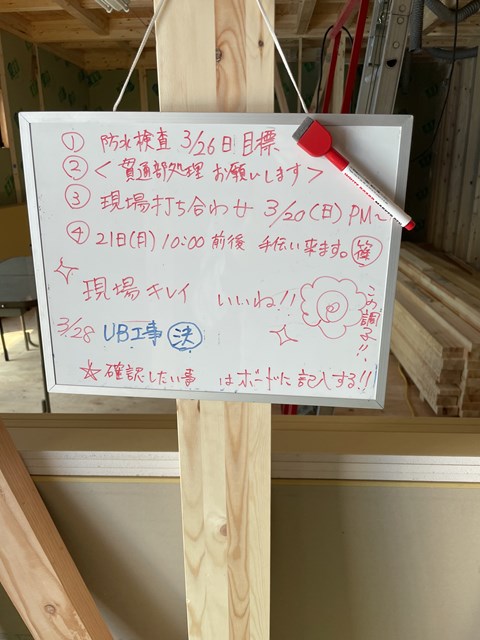 ① 防水検査 3/26日 目標
② <貫通部処理 お願いします>
③ 現場打ち合わせ 3/20(日) PM~
④ 21日(月) 10:00 前後 手伝い来ます。 篠
現場キレイ いいね!!
この調子!!
3/28 UB工事 決
☆確認したい事 はボードに記入する!!